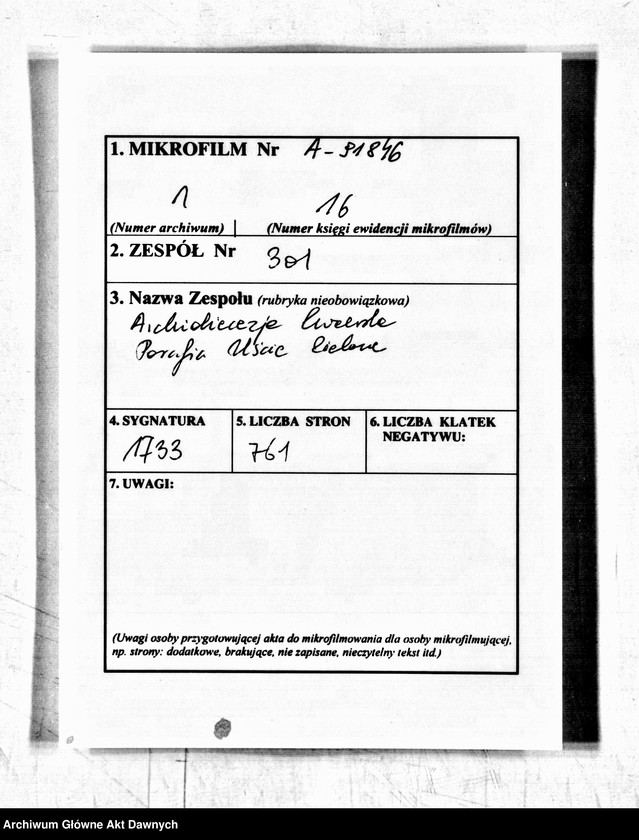 1. MIKROFILM Nr A-91846
1 16
(Numer archiwum) (Numer księgi ewidencji mikrofilmów)
2. ZESPÓŁ Nr 301
3. Nazwa Zespołu (rubryka nieobowiązkowa)
Archidiecezja Lwowska
Parafia Uście Zielone
4. SYGNATURA 5. LICZBA STRON 6. LICZBA KLATEK
NEGATYWU:
1733 761
7. UWAGI:
(Uwagi osoby przygotowującej akta do mikrofilmowania dla osoby mikrofilmującej,
np. strony: dodatkowe, brakujące, nie zapisane, nieczytelny tekst itd.)
Archiwum Główne Akt Dawnych